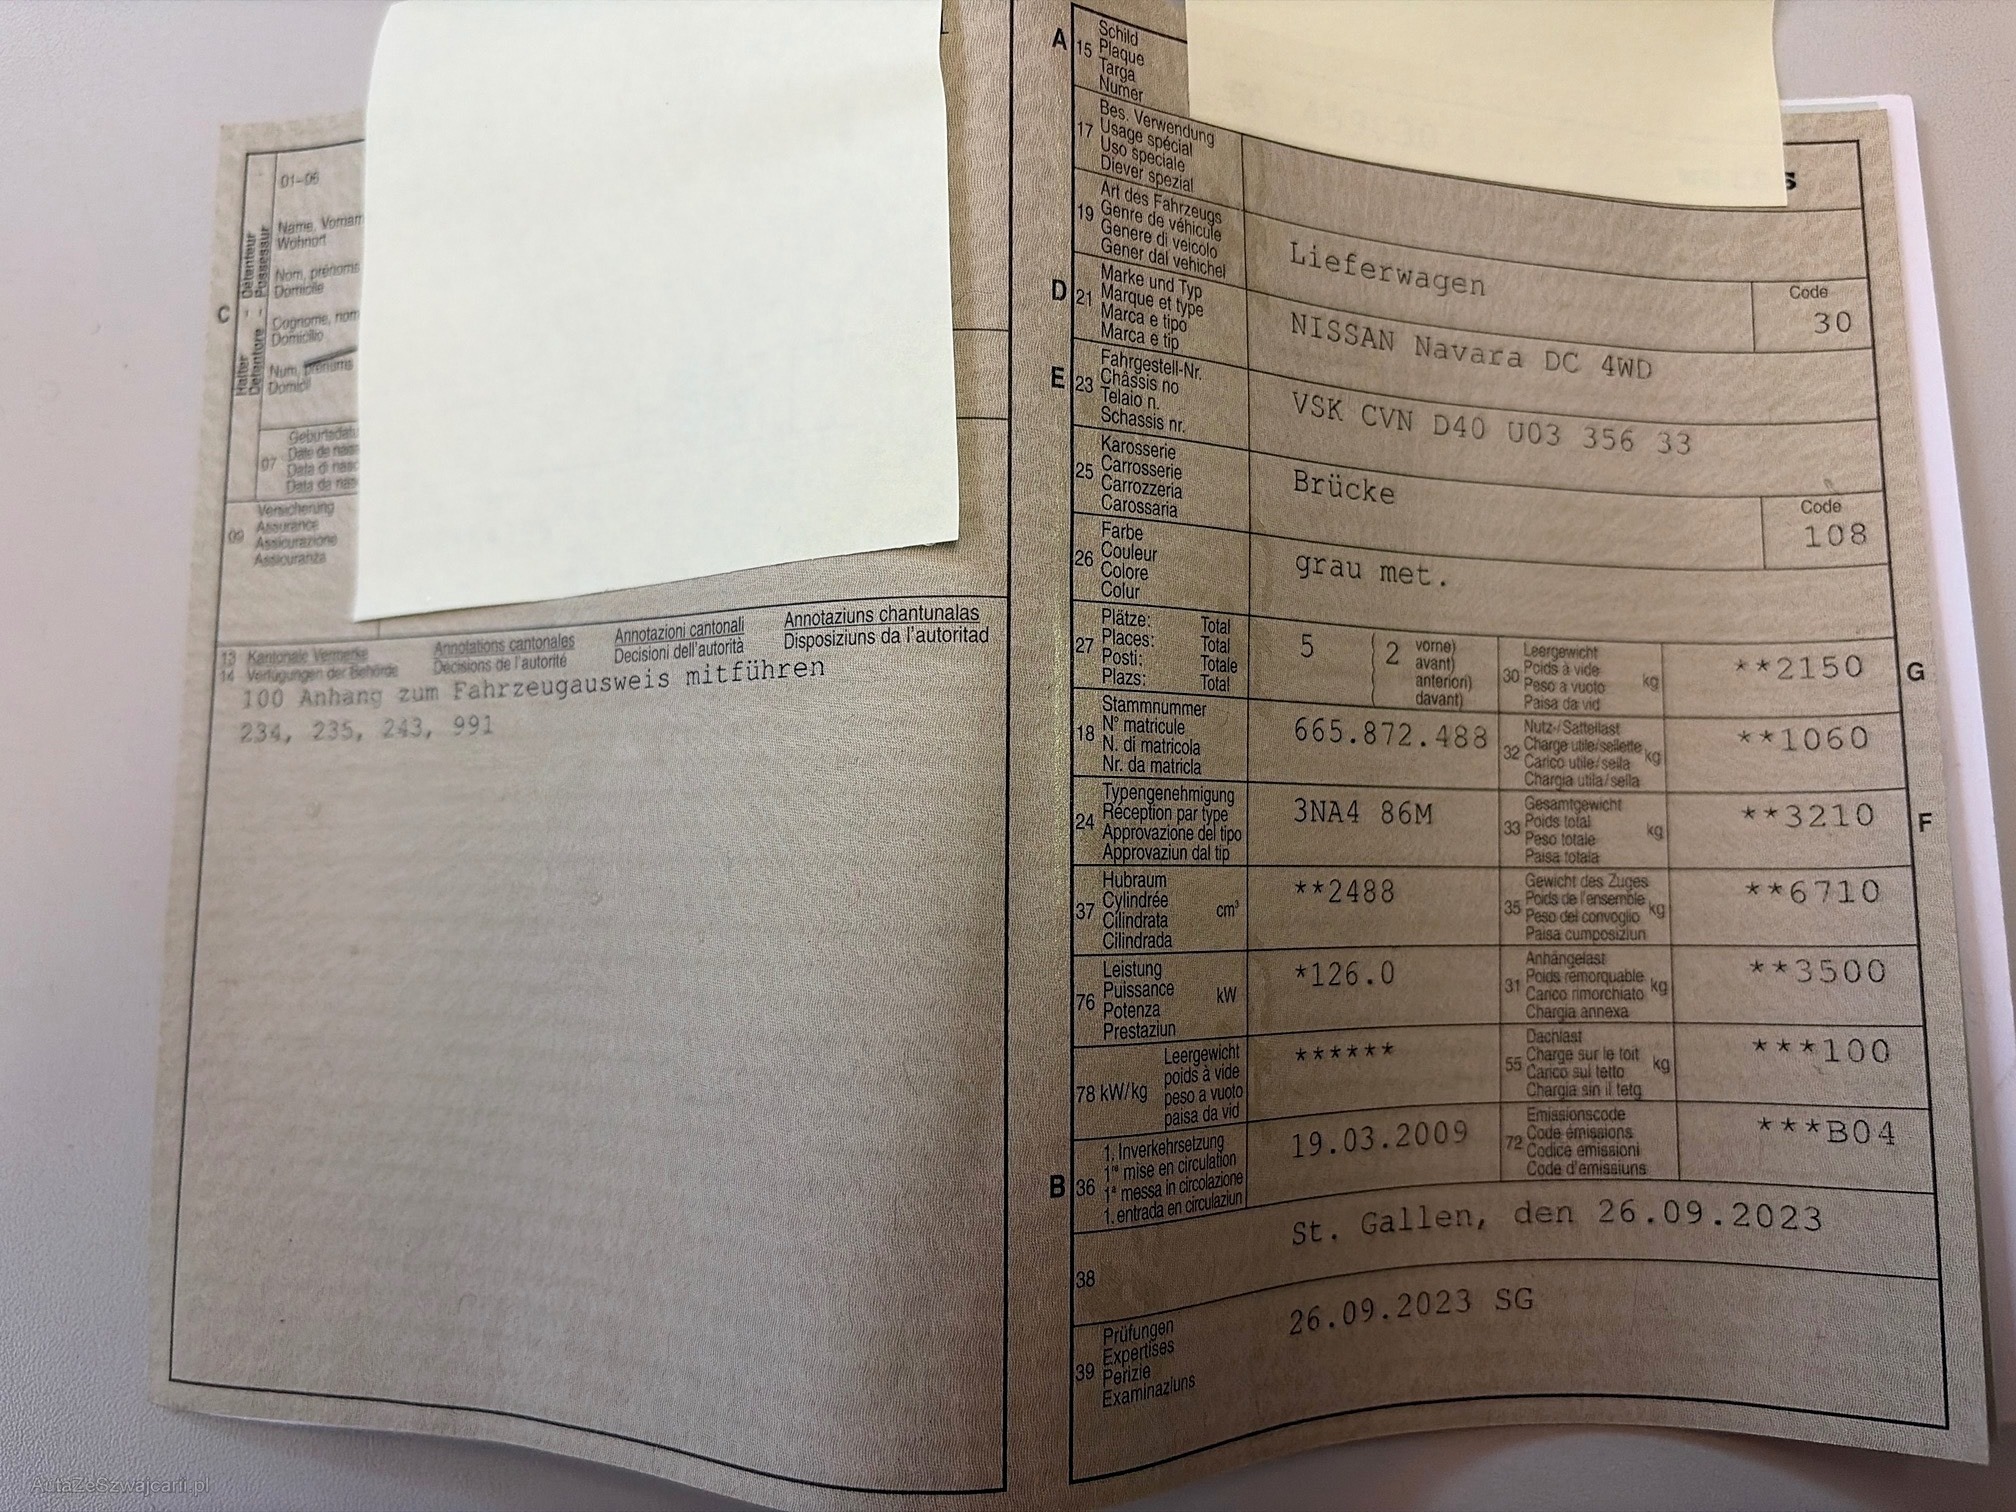 01-06
Name, Vornam
Wohnort
Nom, prénoms
Domicile
Cognome, nom
Domicilio
Num, prenums
Domicil
C
Halter
Détenteur
Detentore
Possessur
07
Geburtsdatu
Date de nais
Data di nasc
Data da nas
09
Versicherung
Assurance
Assicurazione
Assicuranza
13 Kantonale Vermerke Annotations cantonales Annotazioni cantonali Annotaziuns chantunalas
14 Verfügungen der Behörde Décisions de l'autorité Decisioni dell'autorità Disposiziuns da l'autoritad
100 Anhang zum Fahrzeugausweis mitführen
234, 235, 243, 991
A
15
Schild
Plaque
Targa
Numer
s
17
Bes. Verwendung
Usage spécial
Uso speciale
Diever spezial
19
Art des Fahrzeugs
Genre de véhicule
Genere di veicolo
Gener dal vehichel
Lieferwagen
Code
30
D
21
Marke und Typ
Marque et type
Marca e tipo
Marca e tip
NISSAN Navara DC 4WD
E
23
Fahrgestell-Nr.
Châssis no
Telaio n.
Schassis nr.
VSK CVN D40 U03 356 33
25
Karosserie
Carrosserie
Carrozzeria
Carossaria
Brücke
Code
108
26
Farbe
Couleur
Colore
Colur
grau met.
27
Plätze: Total
Places: Total
Posti: Totale
Plazs: Total
5
2
vorne)
avant)
anteriori)
davant)
30
Leergewicht
Poids à vide
Peso a vuoto
Paisa da vid
kg
**2150
G
18
Stammnummer
N° matricule
N. di matricola
Nr. da matricla
665.872.488
32
Nutz-/Sattellast
Charge utile/sellette
Carico utile/sella
Chargia utila/sella
kg
**1060
24
Typengenehmigung
Réception par type
Approvazione del tipo
Approvaziun dal tip
3NA4 86M
33
Gesamtgewicht
Poids total
Peso totale
Paisa totala
kg
**3210
F
37
Hubraum
Cylindrée
Cilindrata
Cilindrada
cm³
**2488
35
Gewicht des Zuges
Poids de l'ensemble
Peso del convoglio
Paisa cumposiziun
kg
**6710
76
Leistung
Puissance
Potenza
Prestaziun
kW
*126.0
31
Anhängelast
Poids remorquable
Carico rimorchiato
Chargia annexa
kg
**3500
78 kW/kg
Leergewicht
poids à vide
peso a vuoto
paisa da vid
******
55
Dachlast
Charge sur le toit
Carico sul tetto
Chargia sin il tetg
kg
***100
B
36
1. Inverkehrsetzung
1re mise en circulation
1a messa in circolazione
1. entrada en circulaziun
19.03.2009
72
Emissionscode
Code émissions
Codice emissioni
Code d'emissiuns
***B04
38
St. Gallen, den 26.09.2023
39
Prüfungen
Expertises
Perizie
Examinaziuns
26.09.2023 SG
AutaZeSzwajcarii.pl